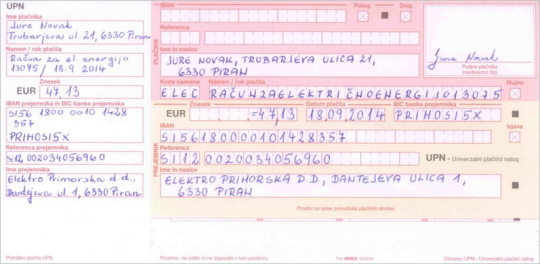 UPN
Ime plačnika
Jure Novak
Trubarjeva ul 21, 6330 Piran
Namen / rok plačila
Račun za el energijo
13075 / 18.9.2014
Znesek
EUR 47,13
IBAN prejemnika in BIC banke prejemnika
SI56 1800 0010 1428
357
PRIMOSI5X
Referenca prejemnika
SI12 002034056960
Ime prejemnika
Elektro Primorska d.d.,
Dantejeva ul. 1, 6330 Piran
Potrdilo plačila UPN
PLAČNIK
IBAN
Polog
Dvig
Referenca
Ime in naslov
JURE NOVAK, TRUBARJEVA ULICA 21,
6330 PIRAN
Jure Novak
Podpis plačnika
Koda namena
Namen / rok plačila
Nujno
ELEC RAČUN ZA ELEKTRIČNO ENERGIJO 13075
Znesek
Datum plačila
BIC banke prejemnika
EUR =47,13 18.09.2014 PRIMOSI5X
PREJEMNIK
IBAN
SI56180000101428357
Referenca
SI12 002034056960
UPN - Univerzalni plačilni nalog
Ime in naslov
ELEKTRO PRIMORSKA D.D., DANTEJEVA ULICA 1,
6330 PIRAN
Prostor za vpise ponudnika plačilnih storitev
Obrazec UPN - Univerzalni plačilni nalog